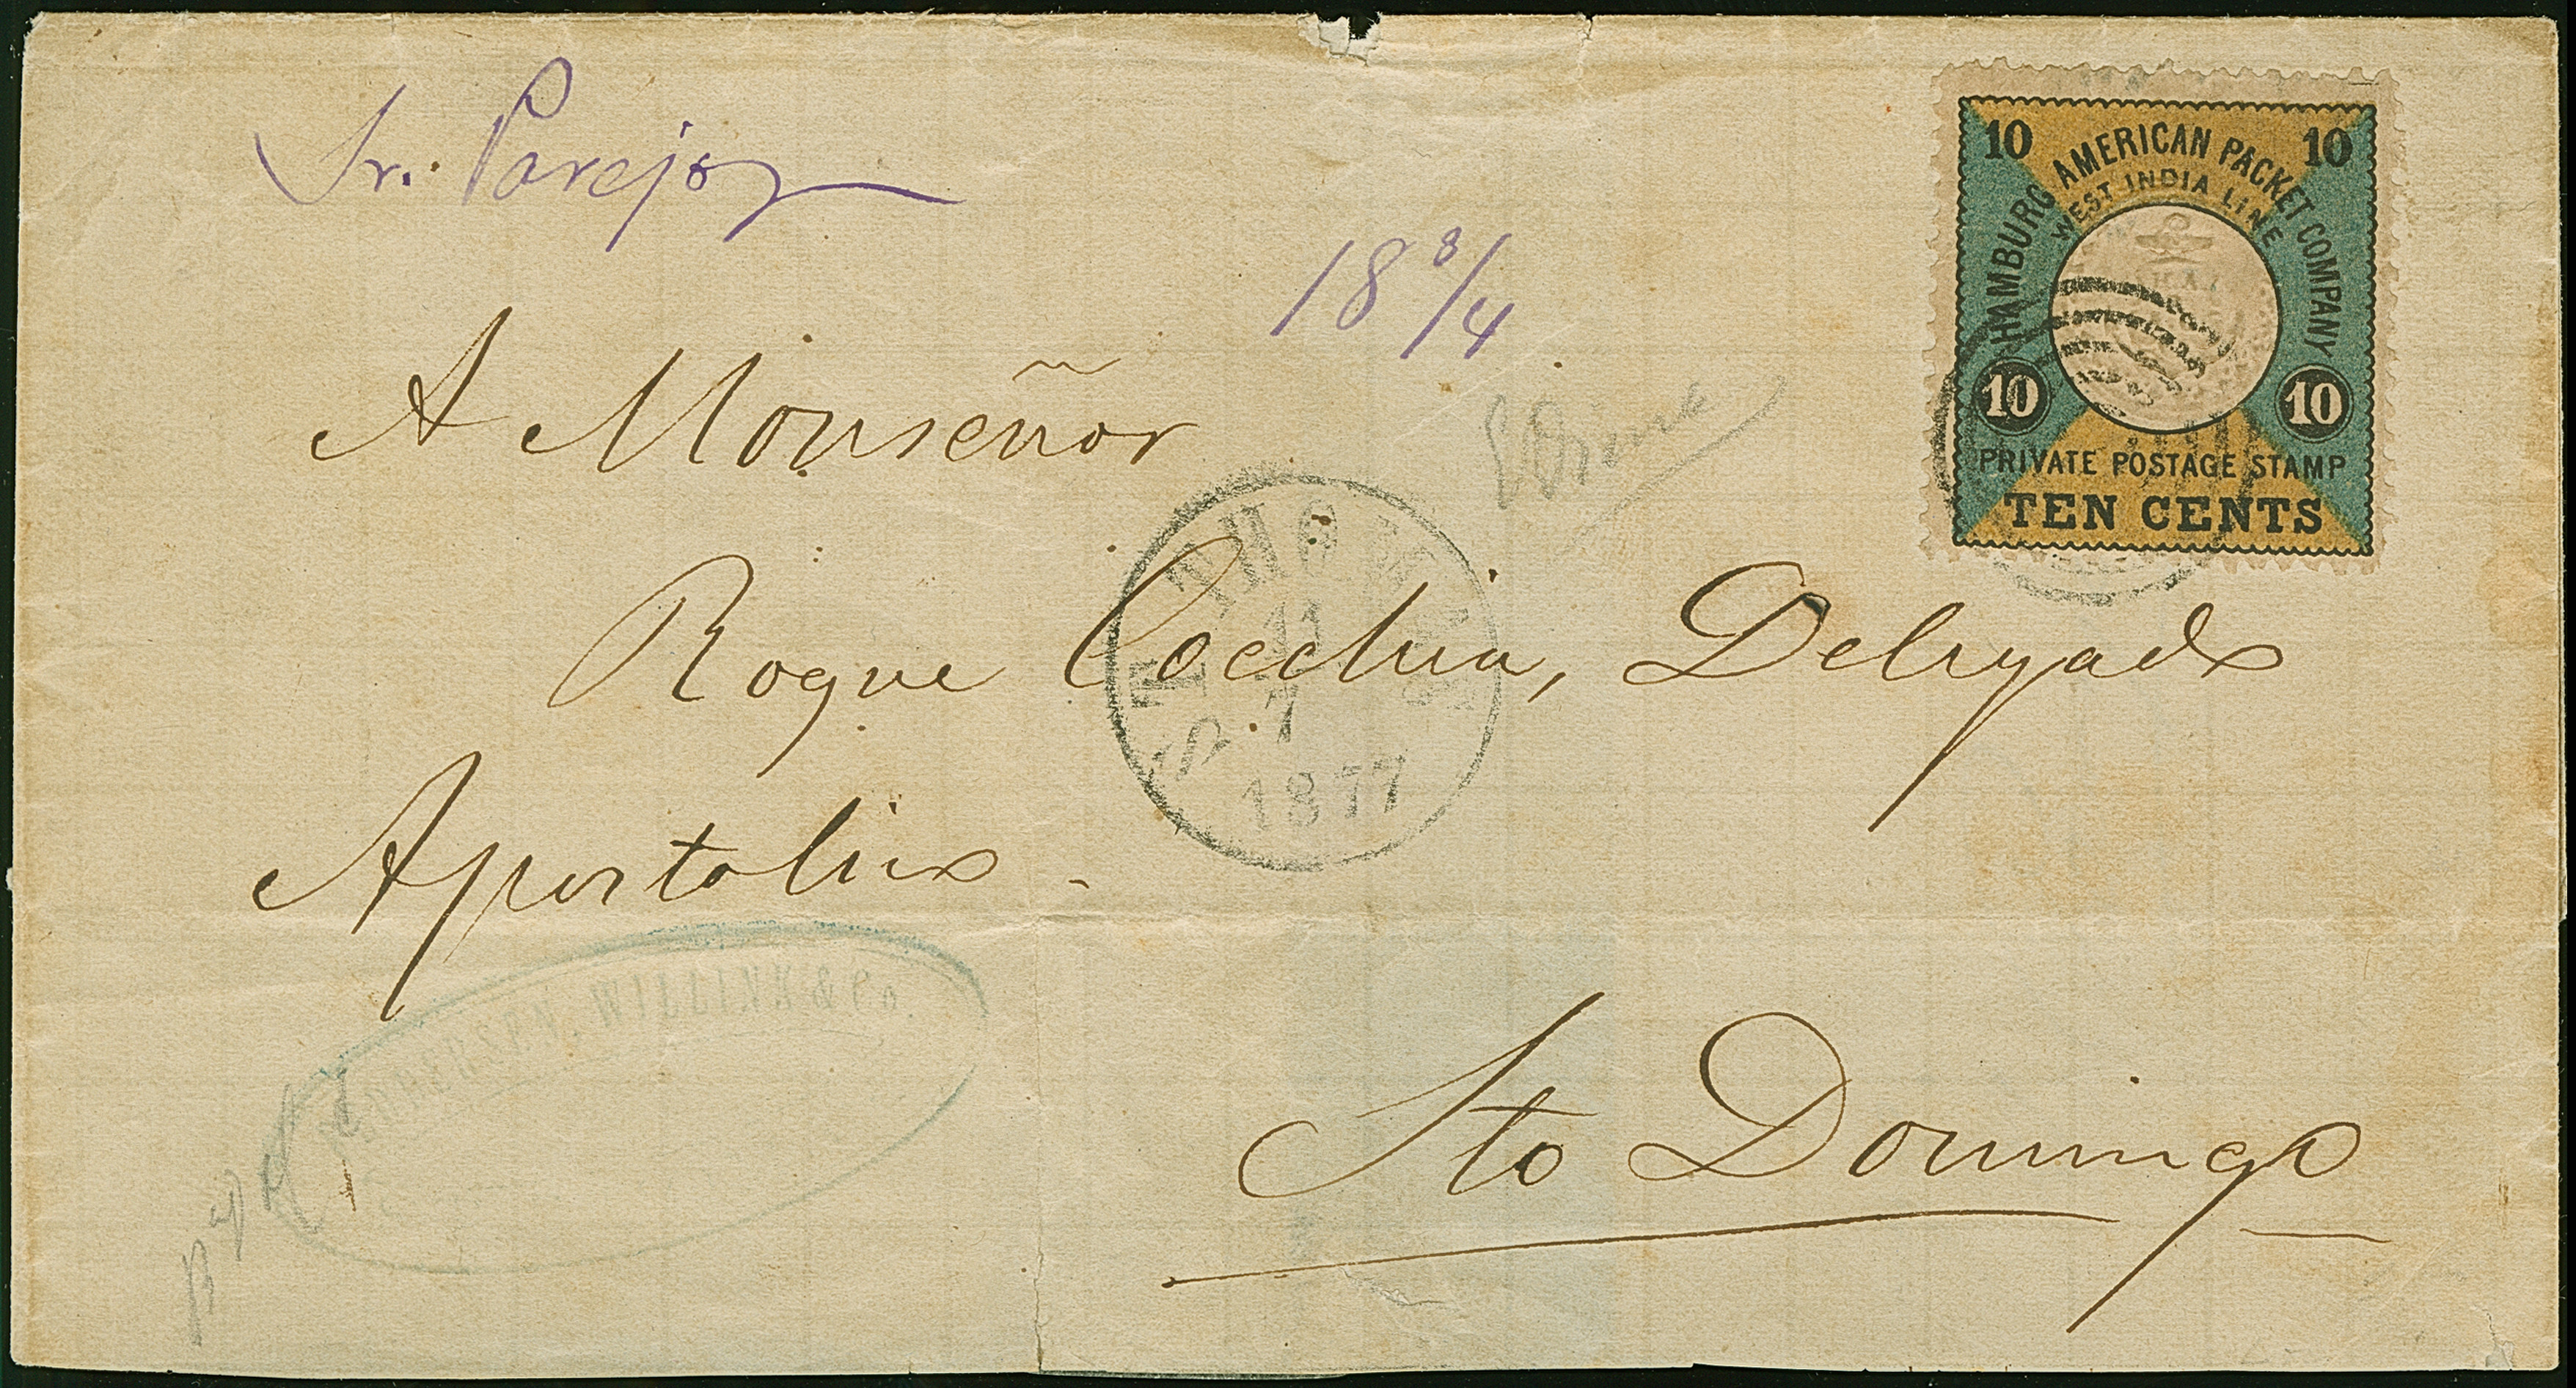 Sr. Parejo
18 8/4
10 10
HAMBURG AMERICAN PACKET COMPANY
WEST INDIA LINE
10 10
PRIVATE POSTAGE STAMP
TEN CENTS
A Monseñor
Roque Cocchia, Delegado
Apostolico
ST THOMAS
11
7
1877
Sto Domingo